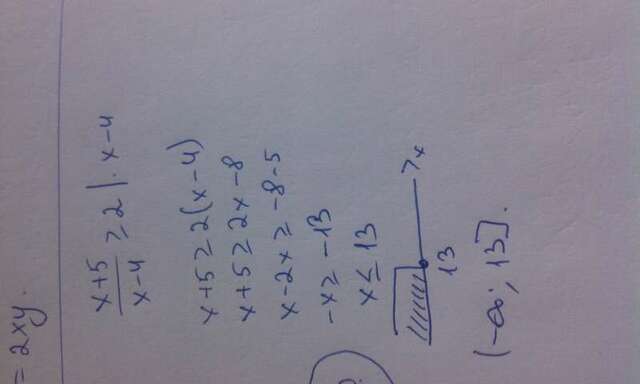 = 2xy.
x+5/x-4 ≥ 2 | · x-4
x+5 ≥ 2(x-4)
x+5 ≥ 2x-8
x-2x ≥ -8-5
-x ≥ -13
x ≤ 13
13
x
(-∞; 13].